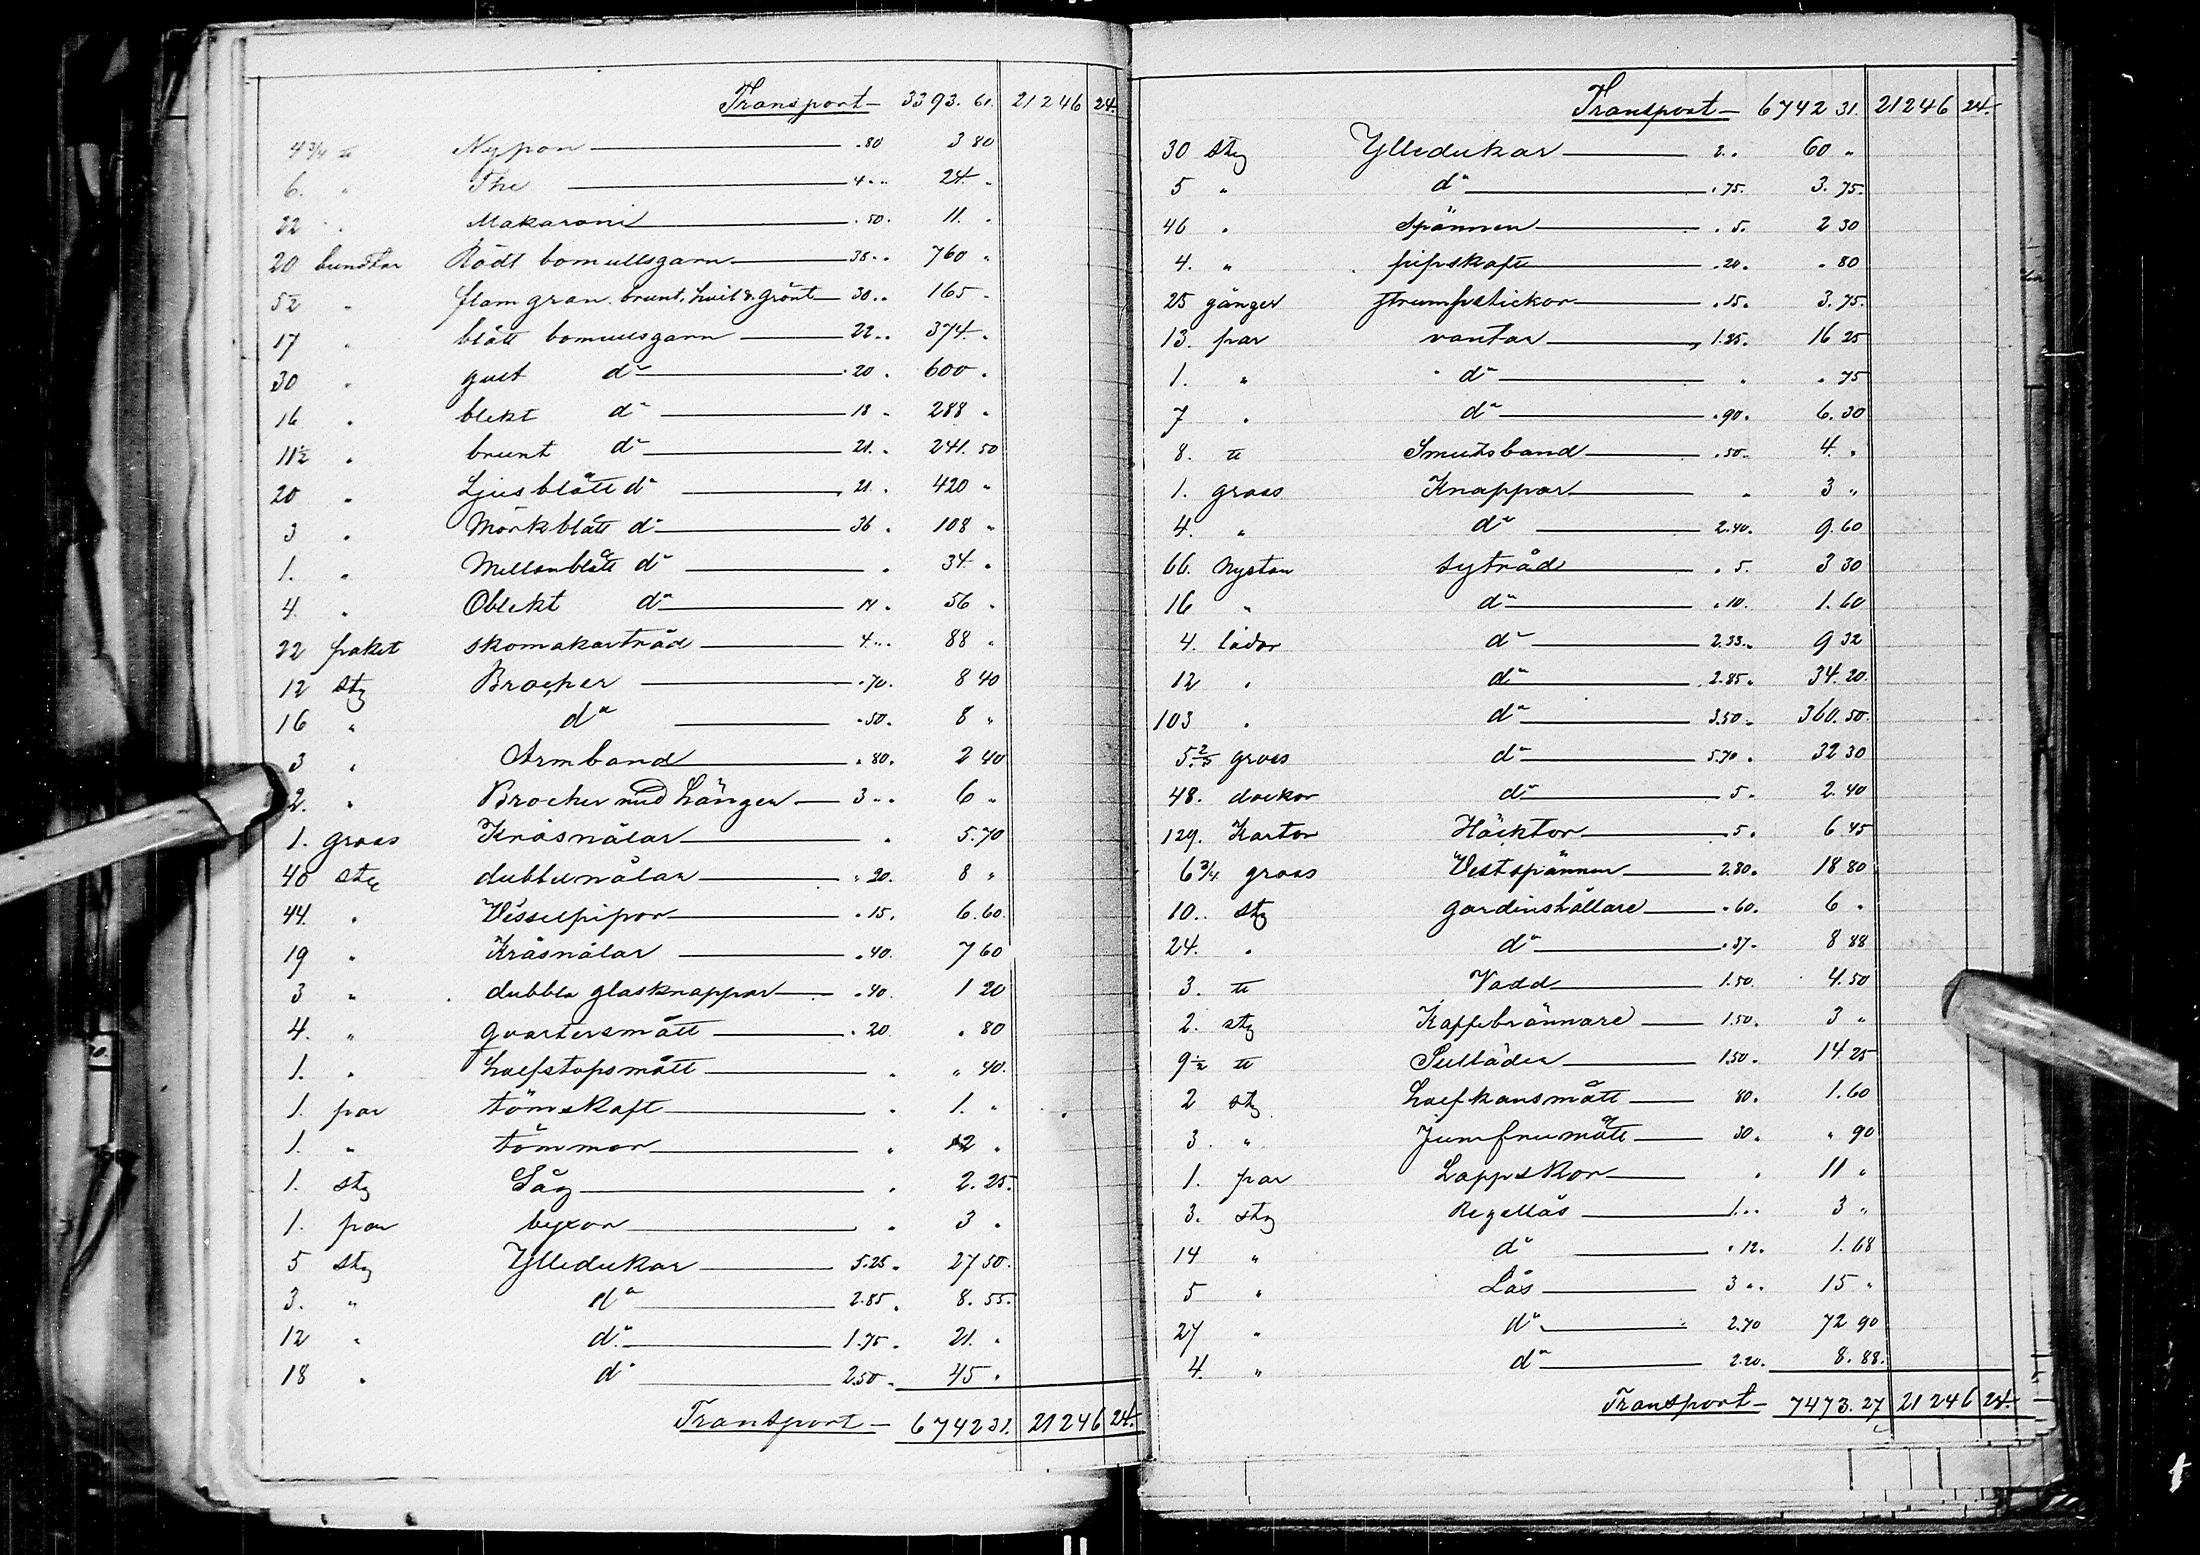 Transport 3393. 61. 21246 24.
4 3/4 ℔ Nypon .80 3 80
6. " The 4 .. 24. "
22 " Makaroni . 50. 11. "
20 bundtar Rödt bomullsgarn 38 .. 760 "
5½ " flamgran. brunt, hvit & grönt 30 .. 165 .
17 " blått bomullsgarn 22 .. 374. "
30 " gult do 20 . 600 .
16 " blekt do 18 . 288 "
11½ " brunt do 21. . 241. 50
20 " Ljusblått do 21 . 420 "
3 " Mörkblått do 36 . 108 "
1. " Mellanblått do . 34. "
4. " Oblekt do 14 . 56 .
22 paket skomakartråd 4 ... 88 "
12 sty Brocher .70. 8 40
16 " do .50. 8 "
3 " Armband . 80. 2 40
2. " Brocher med hängen 3 .. 6 "
1. gross Kråsnålar . 5.70
40 sty dubblenålar " 20. 8 "
44. " Visselpipor . 15. 6.60.
19 " Kråsnålar . 40. 7 60
3 " dubbla glasknappar . 40. 1 20
4. " qvartersmått . 20 . 80
1. " halfstopsmått . " 40.
1. par tömskaft . 1. "
1. " tömmar . 12 .
1. sty Såg . 2. 25.
1. par byxor . 3 .
5 sty Ylledukar 5.25 . 27 50.
3. " do 2.85 . 8. 55.
12 " do 1.75 . 21. "
18 " do 2.50 . 45 .
Transport 6742 31. 21246 24.
Transport 6742 31. 21246 24.
30 sty Ylledukar 2 .. 60 "
5 " do . 75. 3. 75.
46 " Spännen . 5. 2 30
4. " pipskaft . 20. . 80
25 gånger Strumpstickor . 15. 3. 75.
13. par vantar 1.25. 16 25
1. " do " . 75
7 " do . 90. 6. 30
8. ℔ Smutsband . 50. 4. .
1. gross Knappar " 3 "
4. " do 2.40. 9.60
66. Nystan sytråd . 5. 3 30
16 " do . 10. 1. 60
4. lådor do 2.33. 9 32
12 " do 2.85. 34. 20.
103 " do 3.50. 360. 50.
5 2/3 gross do 5.70 . 32 30
48. dockor do 5. 2. 40
129. Kartor Häcktor 5. 6 45
6 3/4 gross Vestspännen 2.80. 18 80
10. sty gardinshållare . 60. 6 .
24. " do . 37. 8 88
3. ℔ Vadd 1.50. 4.50
2. sty Kaffebrännare 1.50. 3 "
9½ ℔ Sulläder 1.50. 14 25
2 sty halfkansmått 80. 1. 60
3. " Jumfrumått 30. " 90
1. par Lappskor . 11 "
3. sty Regellås 1... 3 "
14 " do . 12. 1. 68
5 " Lås 3 .. 15 "
27 " do 2.70 72 90
4. " do 2.20. 8. 88.
Transport 7473. 27 21246 24.